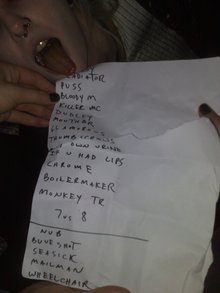 GLADIATOR
PUSS
BLOODY M
KILLER MC
DUDLEY
MOUTHBR
GLAMOROUS
THUMBSCREWS
MY OWN URINE
IF U HAD LIPS
CHROME
BOILERMAKER
MONKEY TR
7 VS 8
NUB
BLUESHOT
SEASICK
MAILMAN
WHEELCHAIR